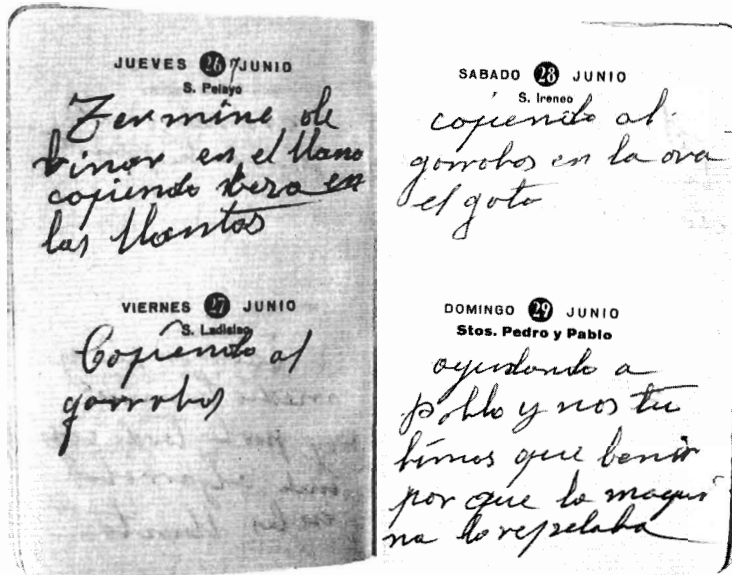 JUEVES 26 JUNIO
S. Pelayo
Termine de
binar en el llano
copiendo bera en
las llantas
VIERNES 27 JUNIO
S. Ladislao
Copiendo al
garrobas
SABADO 28 JUNIO
S. Ireneo
copiendo al
garrobas en la ora
el gato
DOMINGO 29 JUNIO
Stos. Pedro y Pablo
ayudando a
pablo y nos tu
bimos que benir
por que la maqui
na lo repelaba